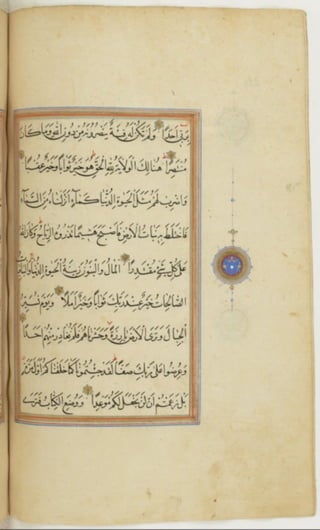 بِرَبِّي أَحَدًا وَلَمْ تَكُنْ لَهُ فِئَةٌ يَنْصُرُونَهُ مِنْ دُونِ اللَّهِ وَمَا كَانَ
مُنْتَصِرًا هُنَالِكَ الْوَلَايَةُ لِلَّهِ الْحَقِّ هُوَ خَيْرٌ ثَوَابًا وَخَيْرٌ عُقْبًا
وَاضْرِبْ لَهُمْ مَثَلَ الْحَيٰوةِ الدُّنْيَا كَمَاءٍ أَنْزَلْنَاهُ مِنَ السَّمَاءِ
فَاخْتَلَطَ بِهِ نَبَاتُ الْأَرْضِ فَأَصْبَحَ هَشِيمًا تَذْرُوهُ الرِّيَاحُ وَكَانَ اللَّهُ
عَلَى كُلِّ شَيْءٍ مُقْتَدِرًا الْمَالُ وَالْبَنُونَ زِينَةُ الْحَيٰوةِ الدُّنْيَا وَالْبَاقِيَاتُ
الصَّالِحَاتُ خَيْرٌ عِنْدَ رَبِّكَ ثَوَابًا وَخَيْرٌ أَمَلًا وَيَوْمَ نُسَيِّرُ
الْجِبَالَ وَتَرَى الْأَرْضَ بَارِزَةً وَحَشَرْنَاهُمْ فَلَمْ نُغَادِرْ مِنْهُمْ أَحَدًا
وَعُرِضُوا عَلَى رَبِّكَ صَفًّا لَقَدْ جِئْتُمُونَا كَمَا خَلَقْنَاكُمْ أَوَّلَ مَرَّةٍ
بَلْ زَعَمْتُمْ أَنْ لَنْ نَجْعَلَ لَكُمْ مَوْعِدًا وَوُضِعَ الْكِتَابُ فَتَرَى